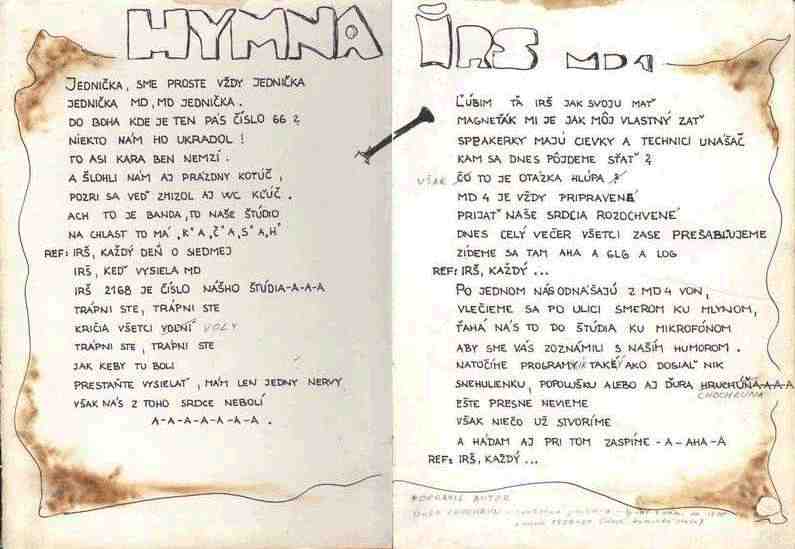 HYMNA IRŠ MD4
JEDNIČKA, SME PROSTE VŽDY JEDNIČKA
JEDNIČKA MD, MD JEDNIČKA.
DO BOHA KDE JE TEN PÁS ČÍSLO 66?
NIEKTO NÁM HO UKRADOL!
TO ASI KARA BEN NEMZÍ.
A ŠLOHLI NÁM AJ PRÁZDNY KOTÚČ,
POZRI SA VEĎ ZMIZOL AJ WC KĽÚČ.
ACH TO JE BANDA, TO NAŠE ŠTÚDIO
NA CHLAST TO MÁ "K" A "Č" A "S" A "H"
REF: IRŠ, KAŽDÝ DEŇ O SIEDMEJ
IRŠ, KEĎ VYSIELA MD
IRŠ 2168 JE ČÍSLO NÁŠHO ŠTÚDIA-A-A-A
TRÁPNI STE, TRÁPNI STE
KRIČIA VŠETCI VOLY
TRÁPNI STE, TRÁPNI STE
JAK KEBY TU BOLI
PRESTAŇTE VYSIELAŤ, MÁM LEN JEDNY NERVY
VŠAK NÁS Z TOHO SRDCE NEBOLÍ
A-A-A-A-A-A-A.
ĽÚBIM ŤA IRŠ JAK SVOJU MAŤ
MAGNEŤÁK MI JE JAK MÔJ VLASTNÝ ZAŤ
SPEAKERKY MAJÚ CIEVKY A TECHNICI UNÁŠAČ
KAM SA DNES PÔJDEME SŤAŤ?
VŠAK ČO TO JE OTÁZKA HLÚPA
MD 4 JE VŽDY PRIPRAVENÉ
PRIJAŤ NAŠE SRDCIA ROZOCHVENÉ
DNES CELÝ VEČER VŠETCI ZASE PREŠABĽUJEME
ZÍDEME SA TAM AHA A GLG A LOG
REF: IRŠ, KAŽDÝ ...
PO JEDNOM NÁS ODNÁŠAJÚ Z MD4 VON,
VLEČIEME SA PO ULICI SMEROM KU MLYNOM,
ŤAHÁ NÁS TO DO ŠTÚDIA KU MIKROFÓNOM
ABY SME VÁS ZOZNÁMILI S NAŠÍM HUMOROM.
NATOČÍME PROGRAMY TAKÉ AKO DOSIAĽ NIK
SNEHULIENKU, POPOLUŠKU ALEBO AJ ĎURA HRUCHÚŇA-A-A-A
CHOCHRUŇA
EŠTE PRESNE NEVIEME
VŠAK NIEČO UŽ STVORÍME
A HÁDAM AJ PRI TOM ZASPÍME -A-AHA-A
REF: IRŠ, KAŽDÝ ...
AUTOR